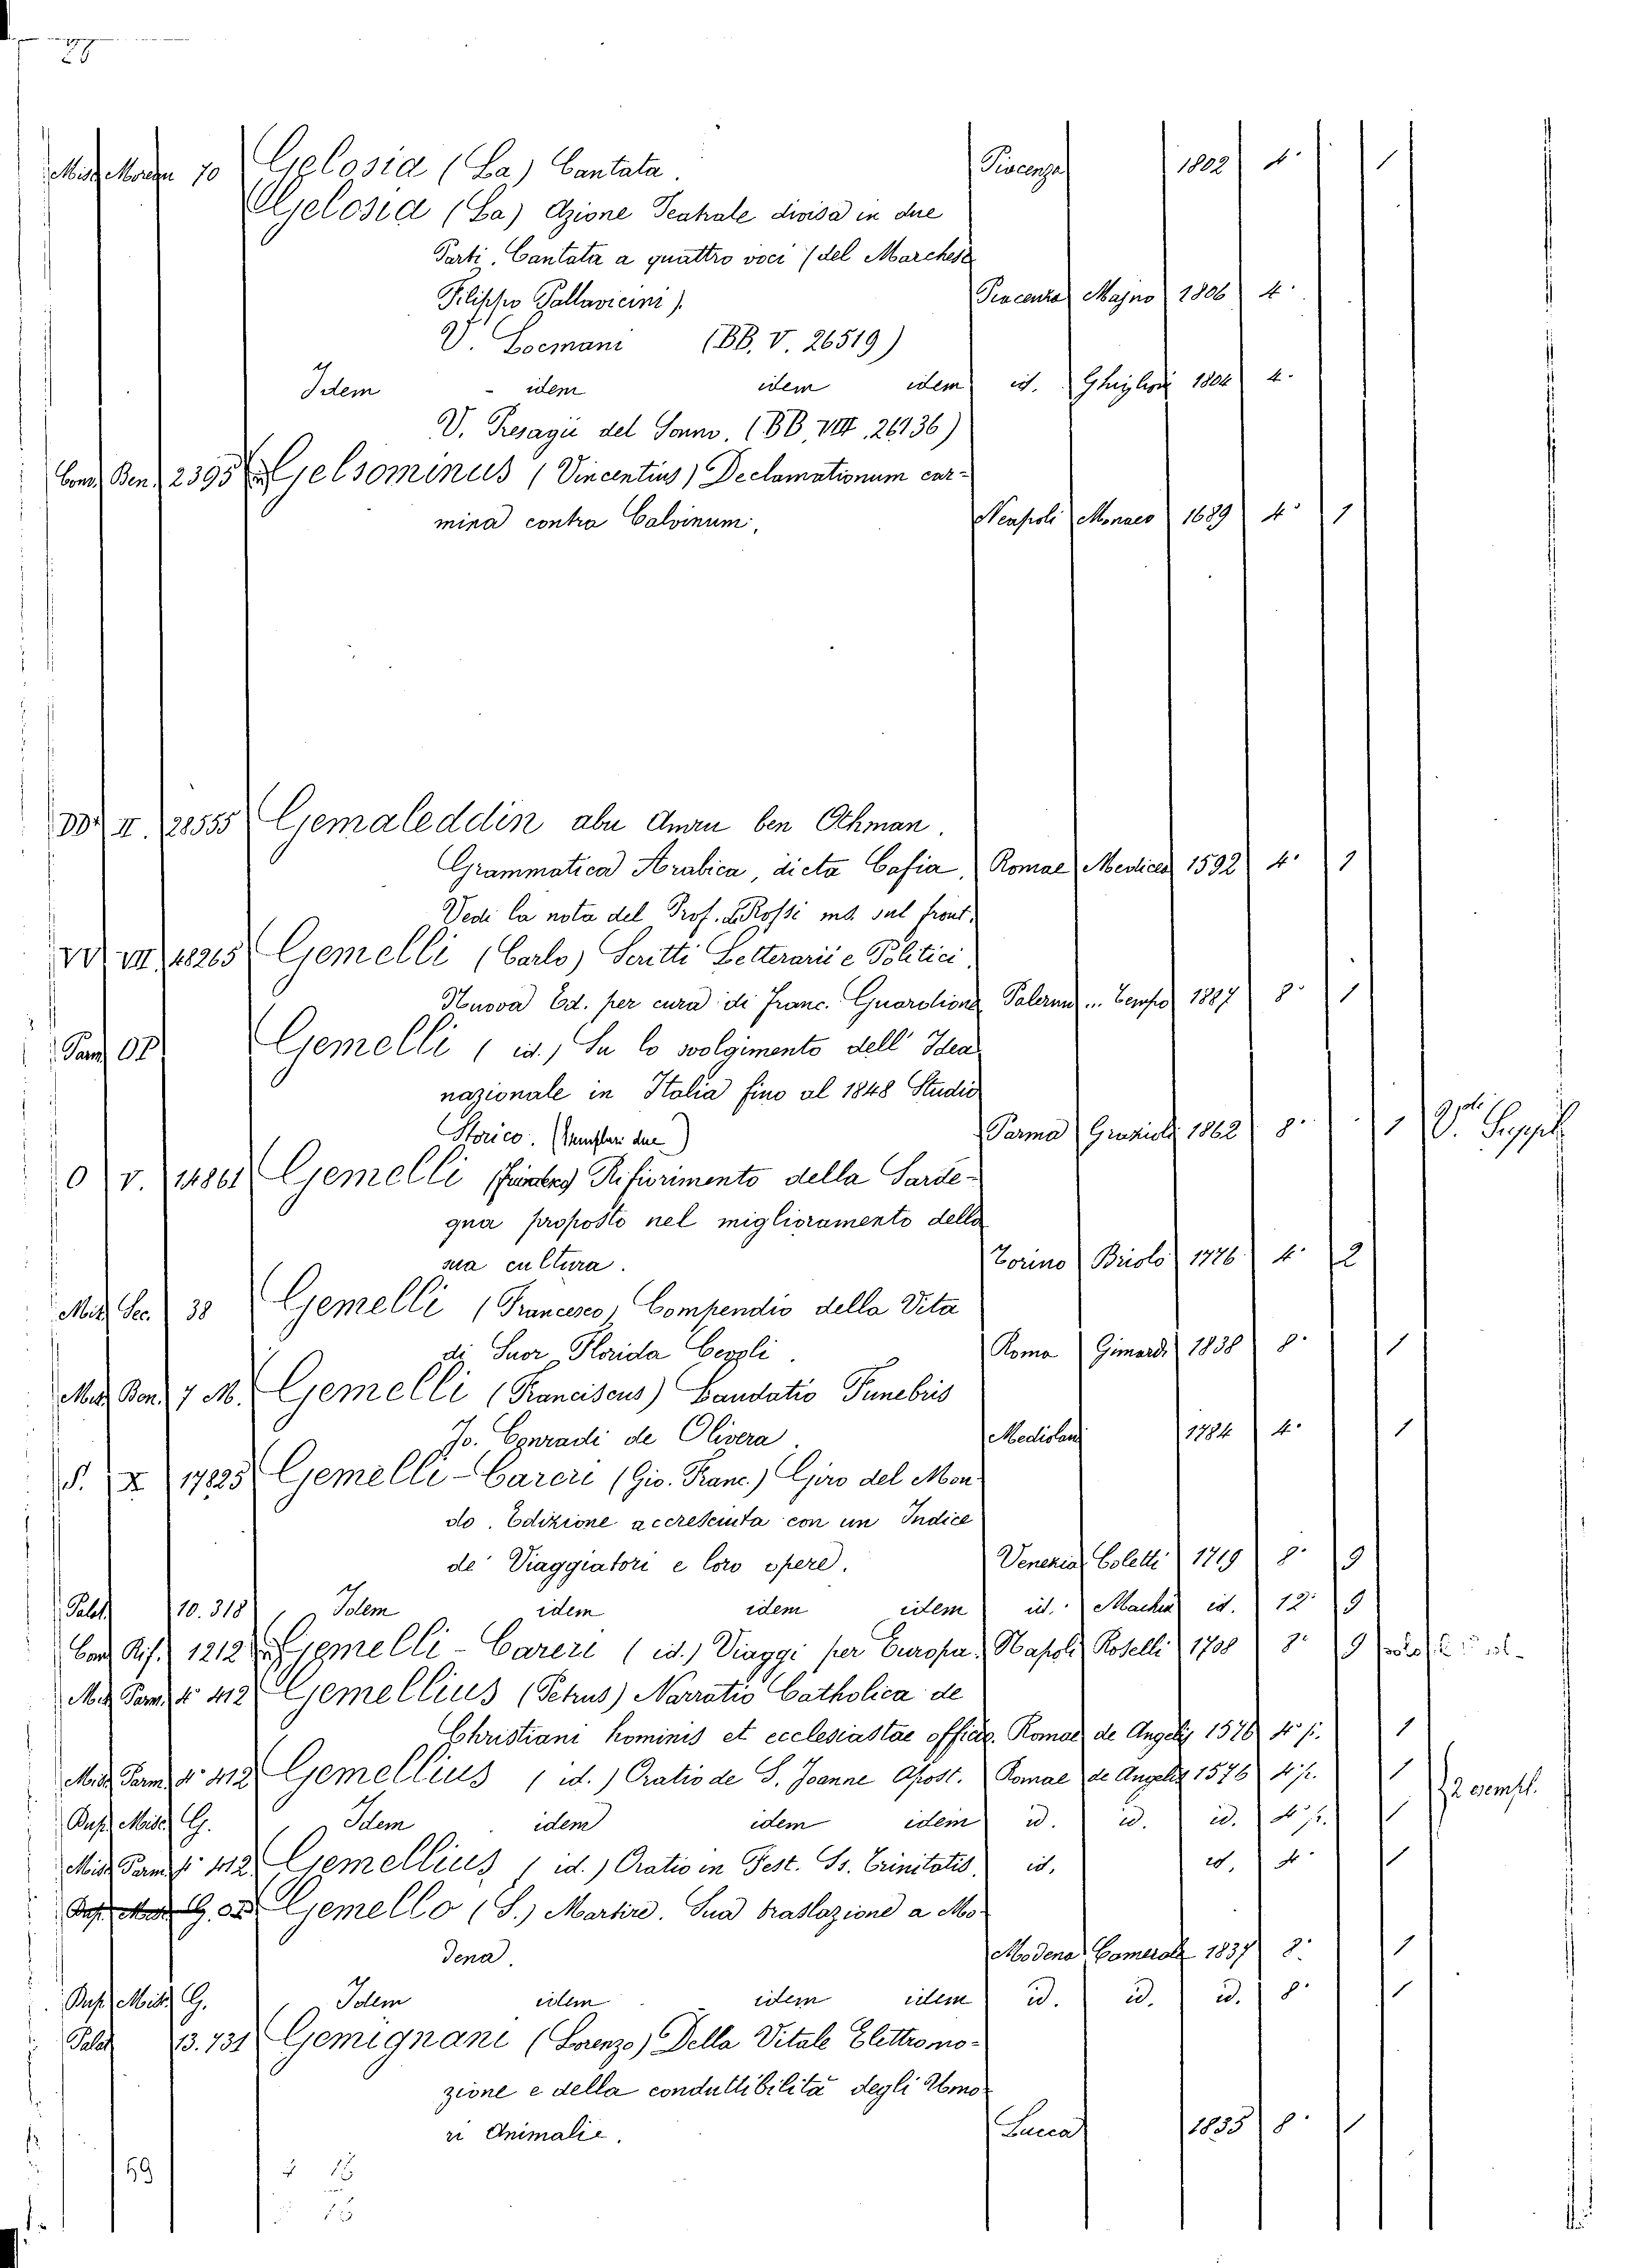 Gelosia (La) Cantata. Piacenza 1802 4° 1
Gelosia (La) Azione Teatrale divisa in due
Parti. Cantata a quattro voci (del Marchese
Filippo Pallavicini). Piacenza Majno 1806 4°
V. Locmani (BB. V. 26519)
Idem - idem idem idem id. Ghiglioni 1804 4°
V. Presagii del Sonno. (BB. VIII. 26136)
Ben. 2395 Gelsominus (Vincentius) Declamationum car-
mina contra Calvinum. Neapoli Monaco 1689 4° 1
DD. II. 28555 Gemaleddin abu Amru ben Othman.
Grammatica Arabica, dicta Cafia. Romae Medicea 1592 4° 1
Vedi la nota del Prof. DeRossi ms. sul front.
VV VII 48265 Gemelli (Carlo) Scritti Letterarii e Politici.
Nuova Ed. per cura di Franc. Guardione Palermo Tempo 1887 8° 1
Gemelli (id.) Su lo svolgimento dell' Idea
nazionale in Italia fino al 1848 Studio
Storico. (Esemplari due) Parma Grazioli 1862 8° 1 V. Suppl.
O V. 14861 Gemelli Rifiorimento della Sarde-
gna proposto nel miglioramento della
sua cultura. Torino Briolo 1776 4° 2
Misc. Sec. 38 Gemelli (Francesco) Compendio della Vita
di Suor Florida Cevoli. Roma Gismondi 1838 8° 1
Misc. Bon. 7 M. Gemelli (Franciscus) Laudatio Funebris
Jo. Conradi de Olivera. Mediolani 1784 4° 1
S. X 17825 Gemelli-Careri (Gio. Franc.) Giro del Mon-
do. Edizione accresciuta con un Indice
de' Viaggiatori e loro opere. Venezia Coletti 1719 8° 9
Palat. 10.318 Idem idem idem idem id. id. 12° 9
1212 Gemelli-Careri (id.) Viaggi per Europa. Napoli Roselli 1708 8°
Misc. Parm. 4° 412 Gemellius (Petrus) Narratio Catholica de
Christiani hominis et ecclesiastae officio. Romae de Angelis 1576 4° p. 1
Misc. Parm. 4° 412 Gemellius (id.) Oratio de S. Joanne Apost. Romae de Angelis 1576 4° p. 1 2 esempl.
Misc. G. Idem idem idem idem id. id. id. 4° p. 1
Misc. Parm. 4° 412 Gemellius (id.) Oratio in Fest. Ss. Trinitatis. id. id. 4° 1
Gemello (S.) Martire. Sua traslazione a Mo-
dena. Modena Camerale 1837 8° 1
Misc. G. Idem idem idem idem id. id. id. 8° 1
Palat. 13.731 Gemignani (Lorenzo) Della Vitale Elettromo-
zione e della conduttibilità degli Umo-
ri Animalie. Lucca 1835 8° 1
59